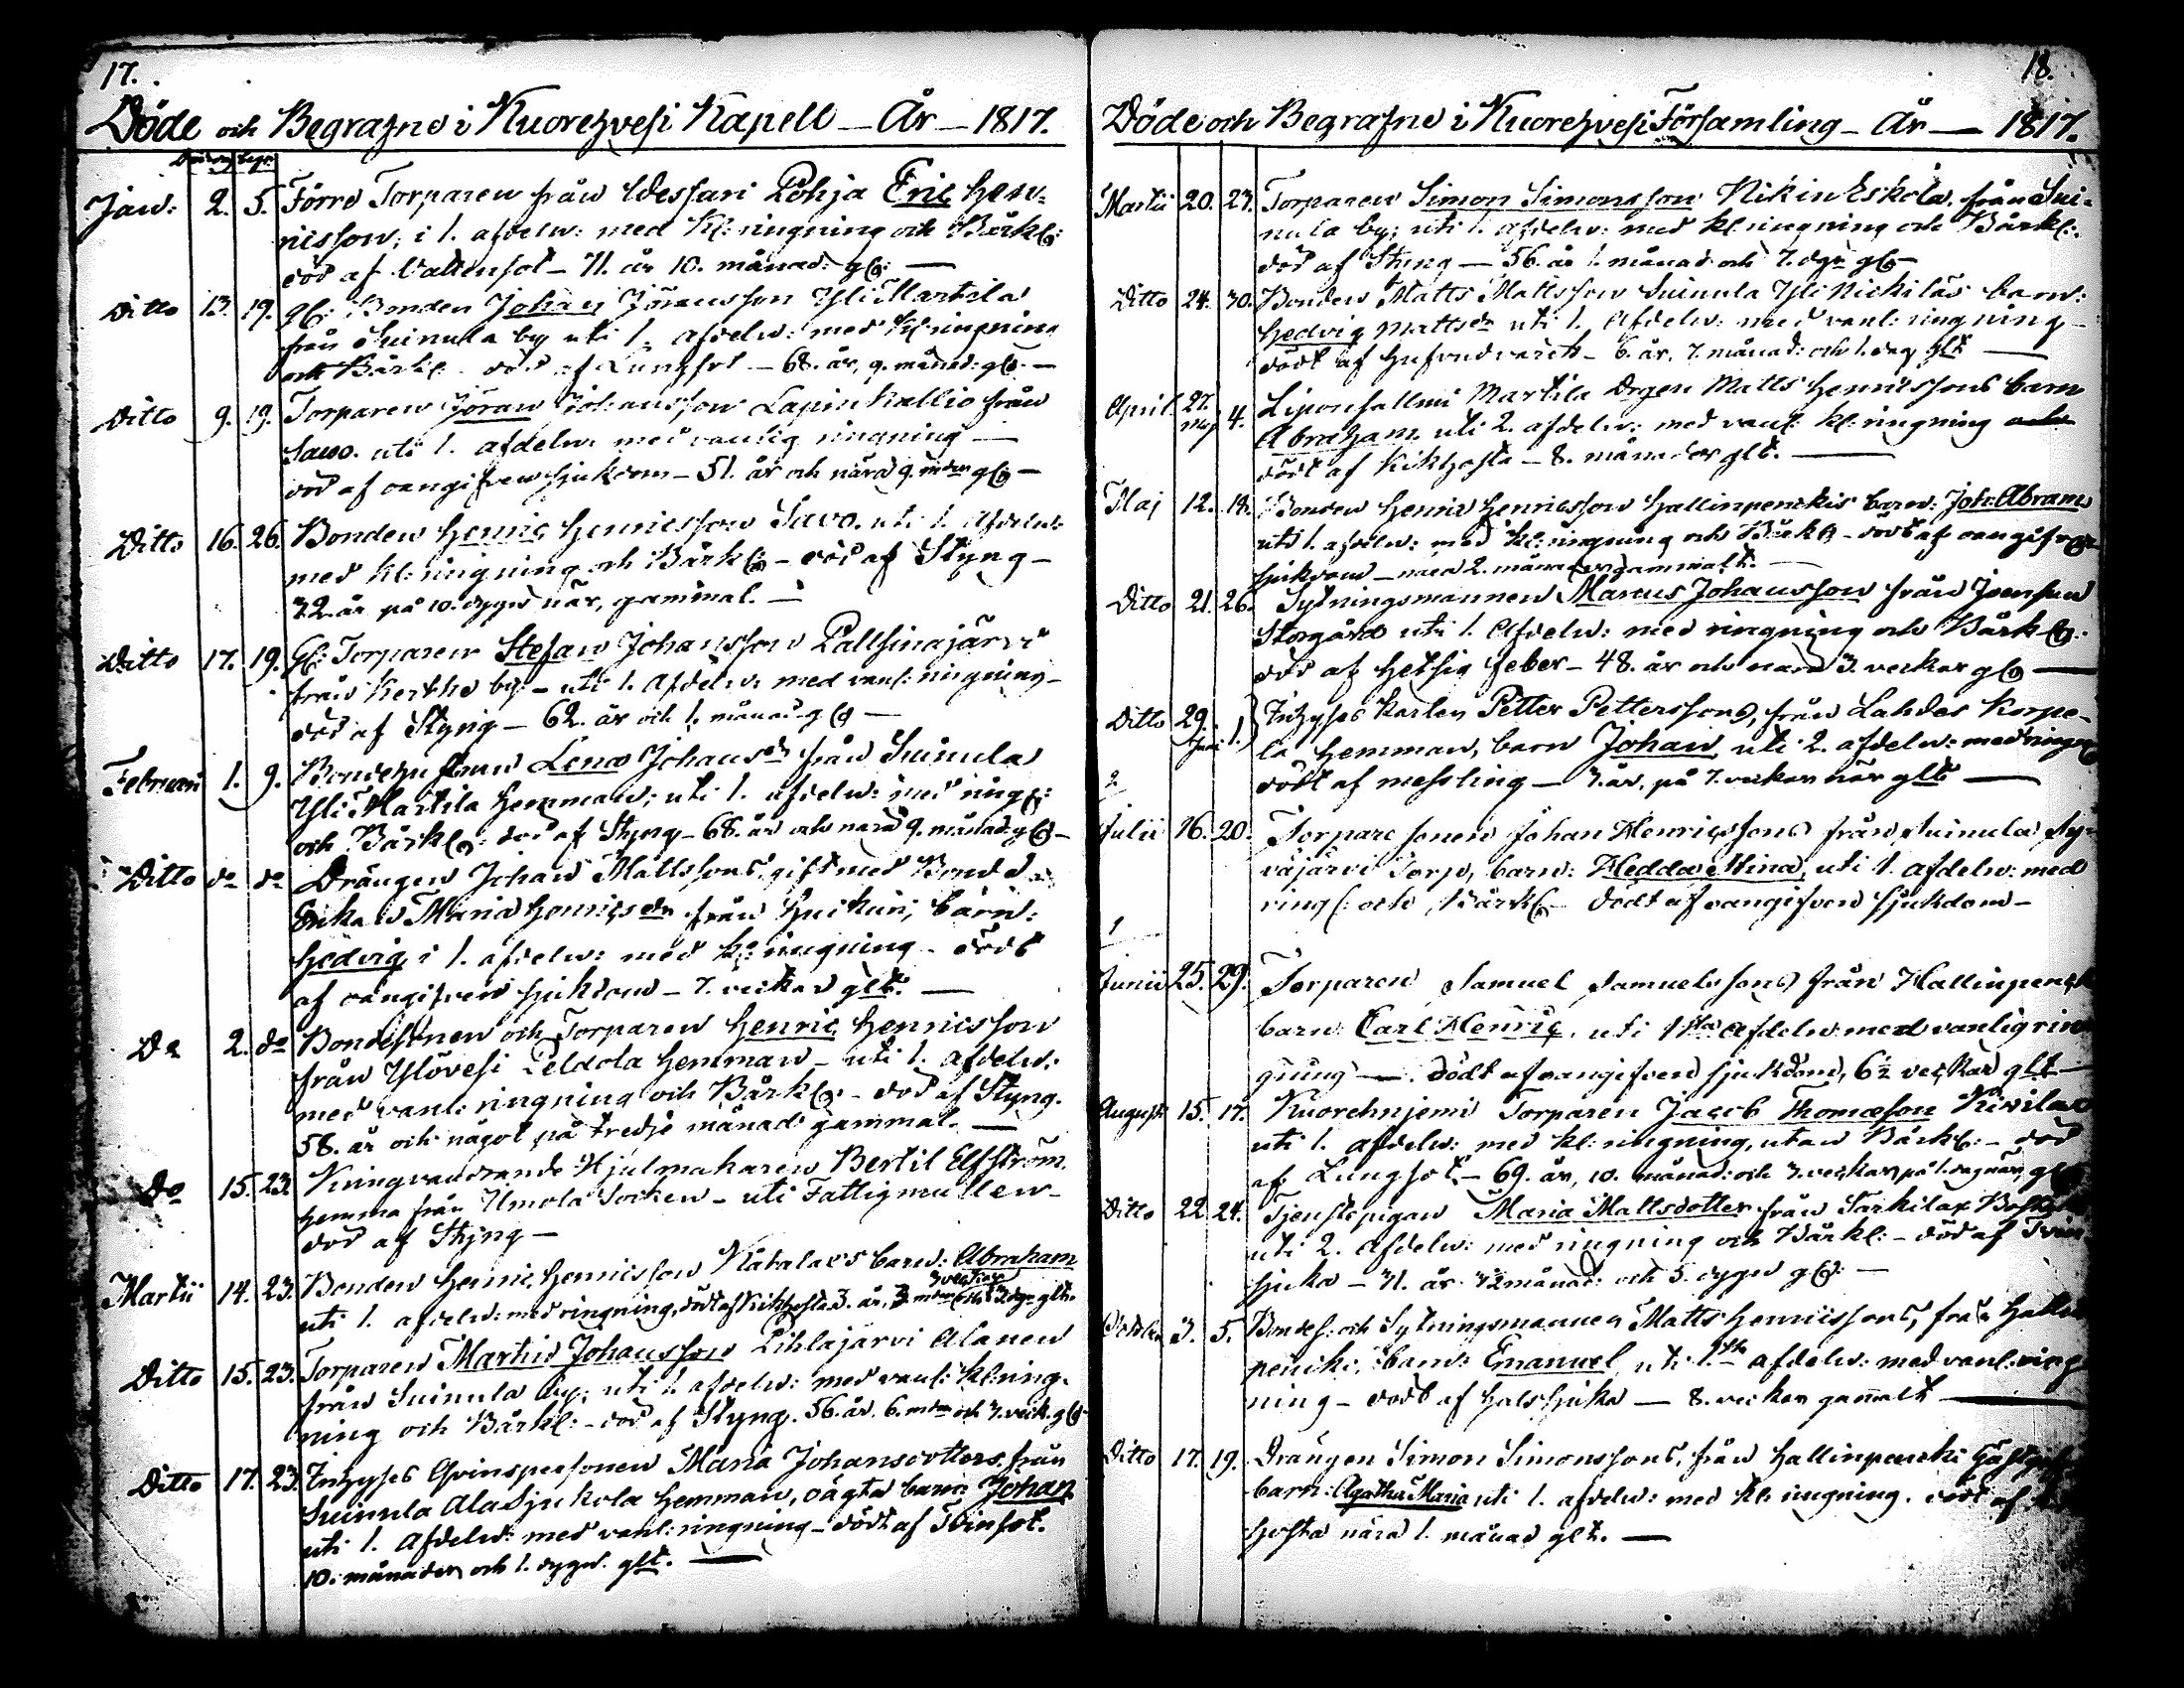 17.
Döde och Begrafne i Kuorehvesi Kapell — År — 1817.
Janu: 2. 5. Förre Torparen från Pohja Eric Hen-
ricsson, i 1. afdeln: med kl: ringning och Bårkl:
död af Vattusot — 71. år 10. månad: gl: —
Ditto 13. 19. gl: Bonden Johan Jöransson Yli Martila
från Suinula by uti 1. afdeln: med kl: ringning
och Bårkl: död af Lungsot — 68. år, 9. månad: gl: —
Ditto 9. 19. Torparen Jöran Johansson Lapinkallio från
Sawo. uti 1. afdeln: med vanlig ringning —
död af oangifven sjukdom — 51. år och nära 9. mdr gl: —
Ditto 16. 26. Bonden Henric Henricsson Savo. uti 1. afdeln:
med kl: ringning och Bårkl: — död af Styng —
72. år på 10. dygn när, gammal. —
Ditto 17. 19. Gl: Torparen Stefan Johansson Pallsinajärvi
från by: — uti 1. afdeln: med vanl: ringning —
död af Styng — 62. år och 1. månad gl: —
Februarii 1. 9. Bondehustrun Lena Johansdr från Suinula
Yli Martila Hemman; uti 1. afdeln: med ringn:
och Bårkl: död af Styng — 68. år och nära 9. månad: gl: —
Ditto do do Drängen Johan Mattssons, gift med Bonde
Enkan Maria Henricsdr från barn:
Hedvig i 1. afdeln: med kl: ringning — dödt
af oangifven sjukdom — 7. veckor glt. —
Do 2. do Bondesonen och Torparen Henric Henricsson
från Ylövesi Peldola Hemman — uti 1. afdeln:
med vanl: ringning och Bårkl: — död af Styng.
58. år och något på tredje månad: gammal. —
Do 15. 23. Kringvandrande Hjulmakaren Bertil Elfström.
hemma från Socken — uti Fattigmullen —
död af Styng —
Martii 14. 23. Bonden Henric Henricsson barn: Abraham
uti 1. afdeln: med ringning, dödt af Kikhosta 3. år, 3 mdr 3 veckor glt.
Ditto 15. 23. Torparen Martin Johansson Pihlajärvi Alanen
från Suinula by; uti 1. afdeln: med vanl: kl: ring-
ning och Bårkl: — död af Styng. 56. år. 6. mdr och 3. veck. gl:
Ditto 17. 23. Inhyses Qvinspersonen Maria Johansdotters, från
Suinula Ala Sjukola Hemman, oägta barn: Johan
uti 1. afdeln: med vanl: ringning — dödt af Tvinsot.
10. månader och 1. dygn. glt. —
18.
Döde och Begrafne i Kuorehvesi Församling — År — 1817.
Martii 20. 23. Torparen Simon Simonsson Nikin Eskola. från Sui-
nula by; uti 1. afdeln: med kl: ringning och Bårkl:
död af Styng — 56. år 1. månad och 7. dygn gl: —
Ditto 24. 30. Bonden Matts Mattsson Suinula Yli Nickiläs barn:
Hedvig Mattsdr uti 1. afdeln: med vanl: ringning —
dödt af Hufvudvärck — 6. år, 7. månad: och 1. dag glt —
April 27. Maj 4. Liponsallmi Martila Drgen Matts Henricssons barn
Abraham. uti 2. afdeln: med vanl: kl: ringning
dödt af Kikhosta — 8. månader glt. —
Maj 12. 18. Bonden Henric Henricsson Hallinpenckis barn: Joh: Abram
uti 1. afdeln: med kl: ringning och Bårkl: — dödt af oangifven
sjukdom — nära 2. månader gammalt. —
Ditto 21. 26. Sytningsmannen Marcus Johansson från
Storgård uti 1. afdeln: med ringning och Bårkl:
död af Hetsig feber — 48. år och nära 3. veckor gl: —
Ditto 29. Juni 1. Inhyses Karlen Petter Petterssons, från Lahdes Korpe-
la Hemman, barn Johan uti 2. afdeln: med ringn:
dödt af messling — 3. år, på 7. veckor när glt —
2
Julii 16. 20. Torparesonen Johan Henricssons från Suinula Sy-
väjärvi Torp, barn: Hedda Stina, uti 1. afdeln: med
ringl: och Bårkl: dödt af oangifven sjukdom —
1
Junii 25. 29. Torparen Samuel Samuelssons från Hallinpencki
barn: Carl Henric. uti 1sta afdeln: med vanlig rin
gning —. dödt af oangifven sjukdom, 6½ veckor glt —
Augusti 15. 17. Kuorehnjemi Torparen Jacob Thomasson Kivilax
uti 1. afdeln: med kl: ringning, utan Bårkl: — död
af Lungsot — 69. år, 10. månad: och 3. veckor, på 1. dag när, gl:
Ditto 22. 24. Tjenstepigan Maria Mattsdotter från Särkilax
uti 2. afdeln: med ringning och Bårkl: — död af
sjuka — 71. år månad: och 5. dygn gl: —
October 3. 5. Bondes: och Sytningsmannen Matts Henricssons, från Hallin
pencki, barn: Emanuel uti 1sta afdeln: med vanl: ring
ning — dödt af Halssjuka — 8. veckor gamalt —
Ditto 17. 19. Drängen Simon Simonssons, från Hallinpencki
barn: Agatha Maria uti 1. afdeln: med kl: ringning. dödt af
hosta nära 1. månad glt. —